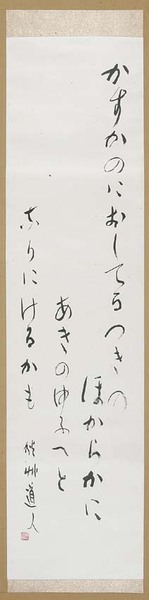 かすかのにおしてるつきの
ほからかに
あきのゆふへと
なりにけるかも
秋艸道人